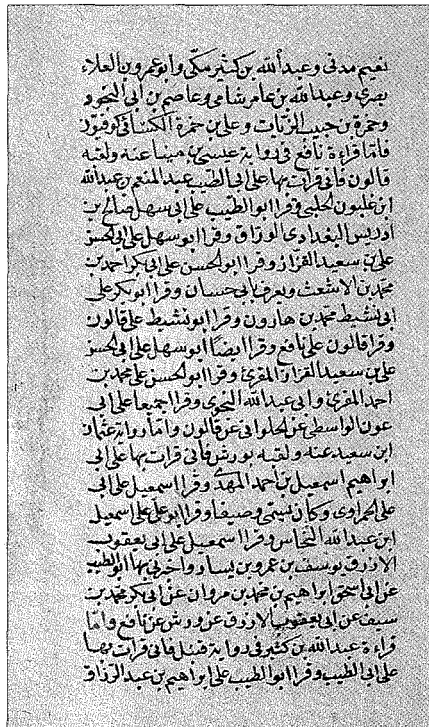 نعيم مدنى وعبد الله بن كثير مكى وابو عمرو بن العلاء
بصرى وعبد الله بن عامر شامى وعاصم بن ابى النجود
وحمزة بن حبيب الزيات وعلى بن حمزة الكسائى كوفيون
فاما قراءة نافع فى رواية عيسى بن مينا عنه ولقبه
قالون فانى قرات بها على ابى الطيب عبد المنعم بن عبد الله
ابن غلبون الحلبى وقرا ابو الطيب على ابى سهل صالح بن
ادريس البغدادى الوراق وقرا ابو سهل على ابى الحسن
على بن سعيد القزاز وقرا ابو الحسن على ابى بكر احمد بن
محمد بن الاشعث ويعرف بابى حسان وقرا ابو بكر على
ابى نشيط محمد بن هارون وقرا ابو نشيط على قالون
وقرا قالون على نافع وقرا ايضا ابو سهل على ابى الحسن
على بن سعيد القزاز المقرئ وقرا ابو الحسن على محمد بن
احمد المقرئ وابى عبد الله النحوى وقرا جميعا على ابى
عون الواسطى عن الحلوانى عن قالون واما رواية عثمان
ابن سعيد عنه ولقبه بورش فانى قرات بها على ابى
ابراهيم اسمعيل بن احمد المهدى وقرا اسمعيل على ابى
على الحمراوى وكان يسمى وصيفا وقرا ابو على على اسمعيل
ابن عبد الله النحاس وقرا اسمعيل على ابى يعقوب
الازرق يوسف بن عمرو بن يسار واخبرنى بها ابو الطيب
عن ابى اسحق ابراهيم بن محمد بن مروان عن ابى بكر محمد بن
سيف عن ابى يعقوب الازرق عن ورش عن نافع واما
قراءة عبد الله بن كثير فى رواية قنبل فانى قرات بها
على ابى الطيب وقرا ابو الطيب على ابراهيم بن عبد الرزاق